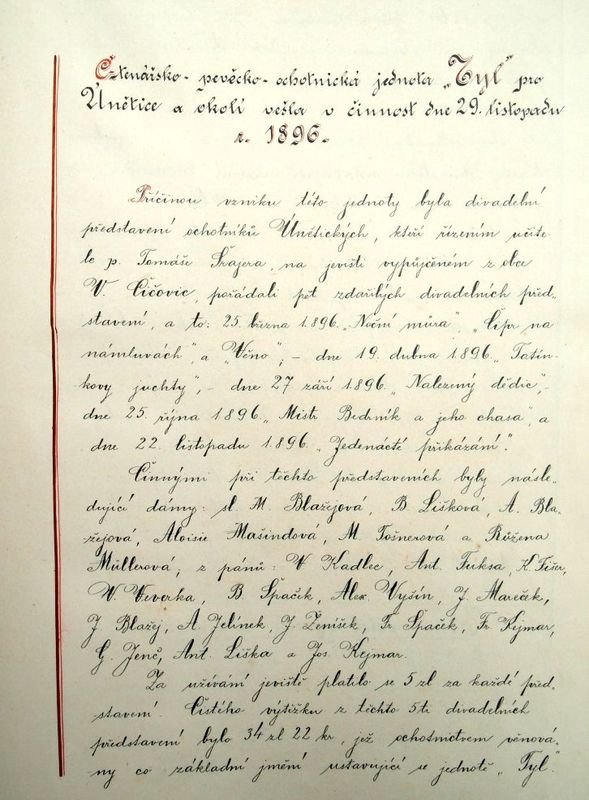 Čtenářsko-pěvecko-ochotnická jednota „Tyl“ pro
Únětice a okolí vešla v činnost dne 29. listopadu
r. 1896.
Příčinou vzniku této jednoty byla divadelní
představení ochotníků Únětických, kteří řízením učite-
le p. Tomáše Šrajera, na jevišti vypůjčeném z obce
V. Čičovic, pořádali pět zdařilých divadelních před-
stavení, a to: 25. března 1896. „Noční můra“, „Cipr na
námluvách“, a „Věno“; – dne 19. dubna 1896. „Tatín-
kovy juchty“, – dne 27 září 1896. „Nalezený dědic“, –
dne 25. října 1896. „Mistr Bedník a jeho chasa“, a
dne 22. listopadu 1896. „Jedenácté přikázání“.
Činnými při těchto představeních byly násle-
dující dámy: sl. M. Blažejová, B. Lišková, A. Bla-
žejová, Aloisie Mašindová, M. Tošnerová a Růžena
Müllerová; z pánů: V. Kadlec, Ant. Fuksa, K. Fišer,
W. Weverka, B. Špaček, Alex. Vyšín, J. Mareček,
J. Blažej, A. Jelínek, J. Ženíšek, Fr. Špaček, Fr. Kejmar,
G. Jenč, Ant. Liška a Jos. Kejmar.
Za užívání jeviště platilo se 5 zl za každé před-
stavení. Čistého výtěžku z těchto 5ti divadelních
představení bylo 34 zl 22 kr., jež ochotnictvem věnová-
ny co základní jmění ustavující se jednotě „Tyl“.